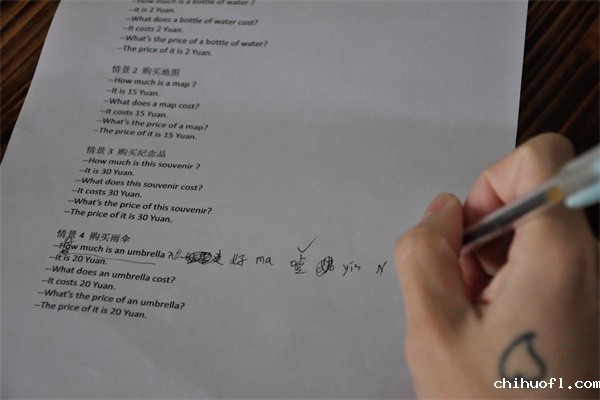 --How much is a bottle of water ?
--It is 2 Yuan.
--What does a bottle of water cost?
--It costs 2 Yuan.
--What's the price of a bottle of water?
--The price of it is 2 Yuan.
情景 2 购买地图
--How much is a map ?
--It is 15 Yuan.
--What does a map cost?
--It costs 15 Yuan.
--What's the price of a map?
--The price of it is 15 Yuan.
情景 3 购买纪念品
--How much is this souvenir ?
--It is 30 Yuan.
--What does this souvenir cost?
--It costs 30 Yuan.
--What's the price of this souvenir?
--The price of it is 30 Yuan.
情景 4 购买雨伞
--How much is an umbrella ? 好 ma yis
--It is 20 Yuan.
--What does an umbrella cost?
--It costs 20 Yuan.
--What's the price of an umbrella?
--The price of it is 20 Yuan.
chihuo51.com